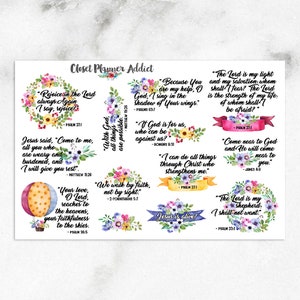 Closet Planner Addict
"Rejoice in the Lord
always. Again
I say, rejoice."
- PSALM
"With God,
all things
are possible."
"Because You
are my help, O
God, I sing in the
shadow of Your wings."
- PSALM 63:7
"The Lord is my light
and my salvation whom
shall I fear? The Lord is
the strength of my life;
of whom shall I
be afraid?"
- PSALM 27:1
"If God is for us,
who can be
against us?"
- ROMANS 8:31
Jesus said, "Come to
me, all you who
are weary and
burdened, and
I will give you rest."
MATTHEW 11:28
Come near to God
and He will come
near to you.
- JAMES 4:8
"I can do all things
through Christ who
strengthens me."
"Your love, O
Lord, reaches
to the heavens,
your faithfulness
to the skies.
- PSALM 36:5
"We walk by faith,
not by sight."
- 2 CORINTHIANS 5:7
Jesus is alive!
"The Lord is my
Shepherd;
I shall not want."
- PSALM 23:1